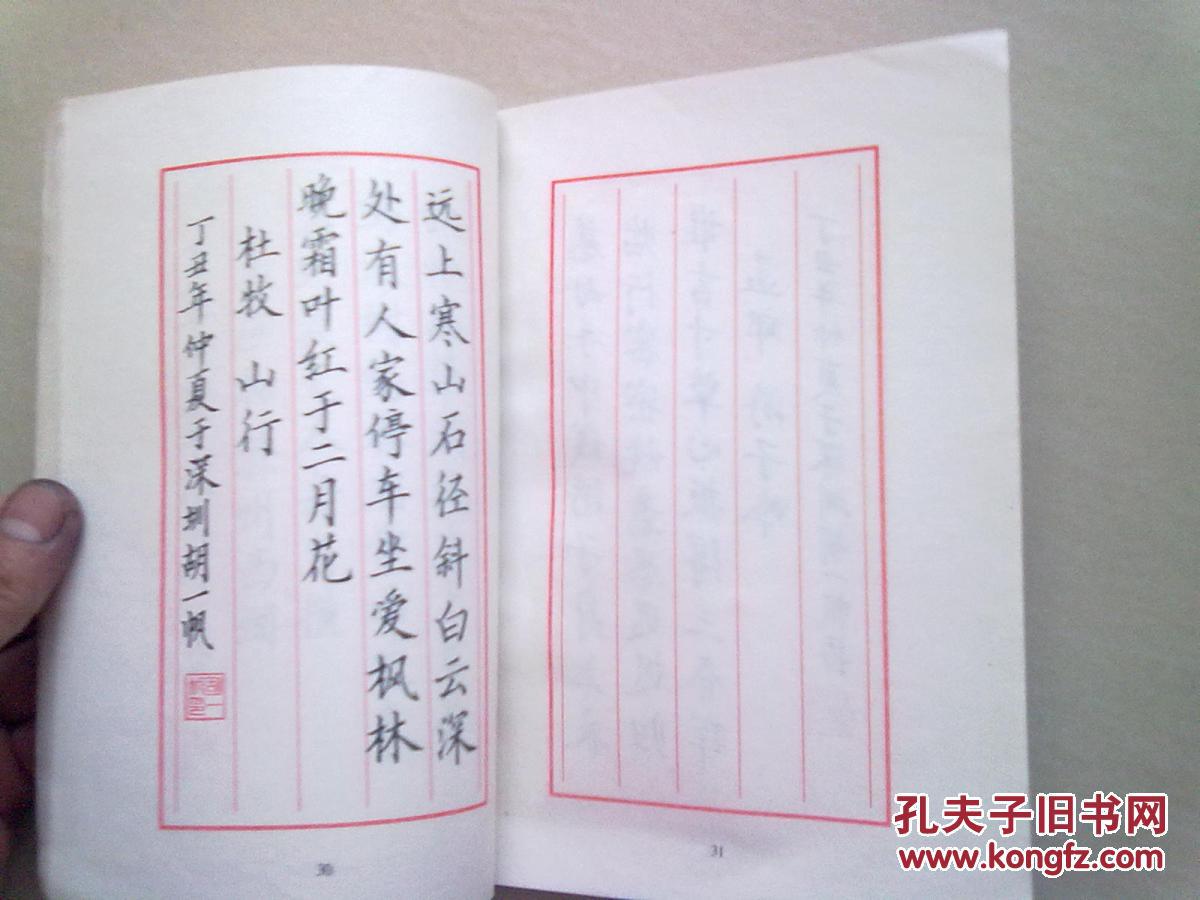 远上寒山石径斜白云深
处有人家停车坐爱枫林
晚霜叶红于二月花
杜牧 山行
丁丑年仲夏于深圳胡一帆
30
31
孔夫子旧书网
www.kongfz.com